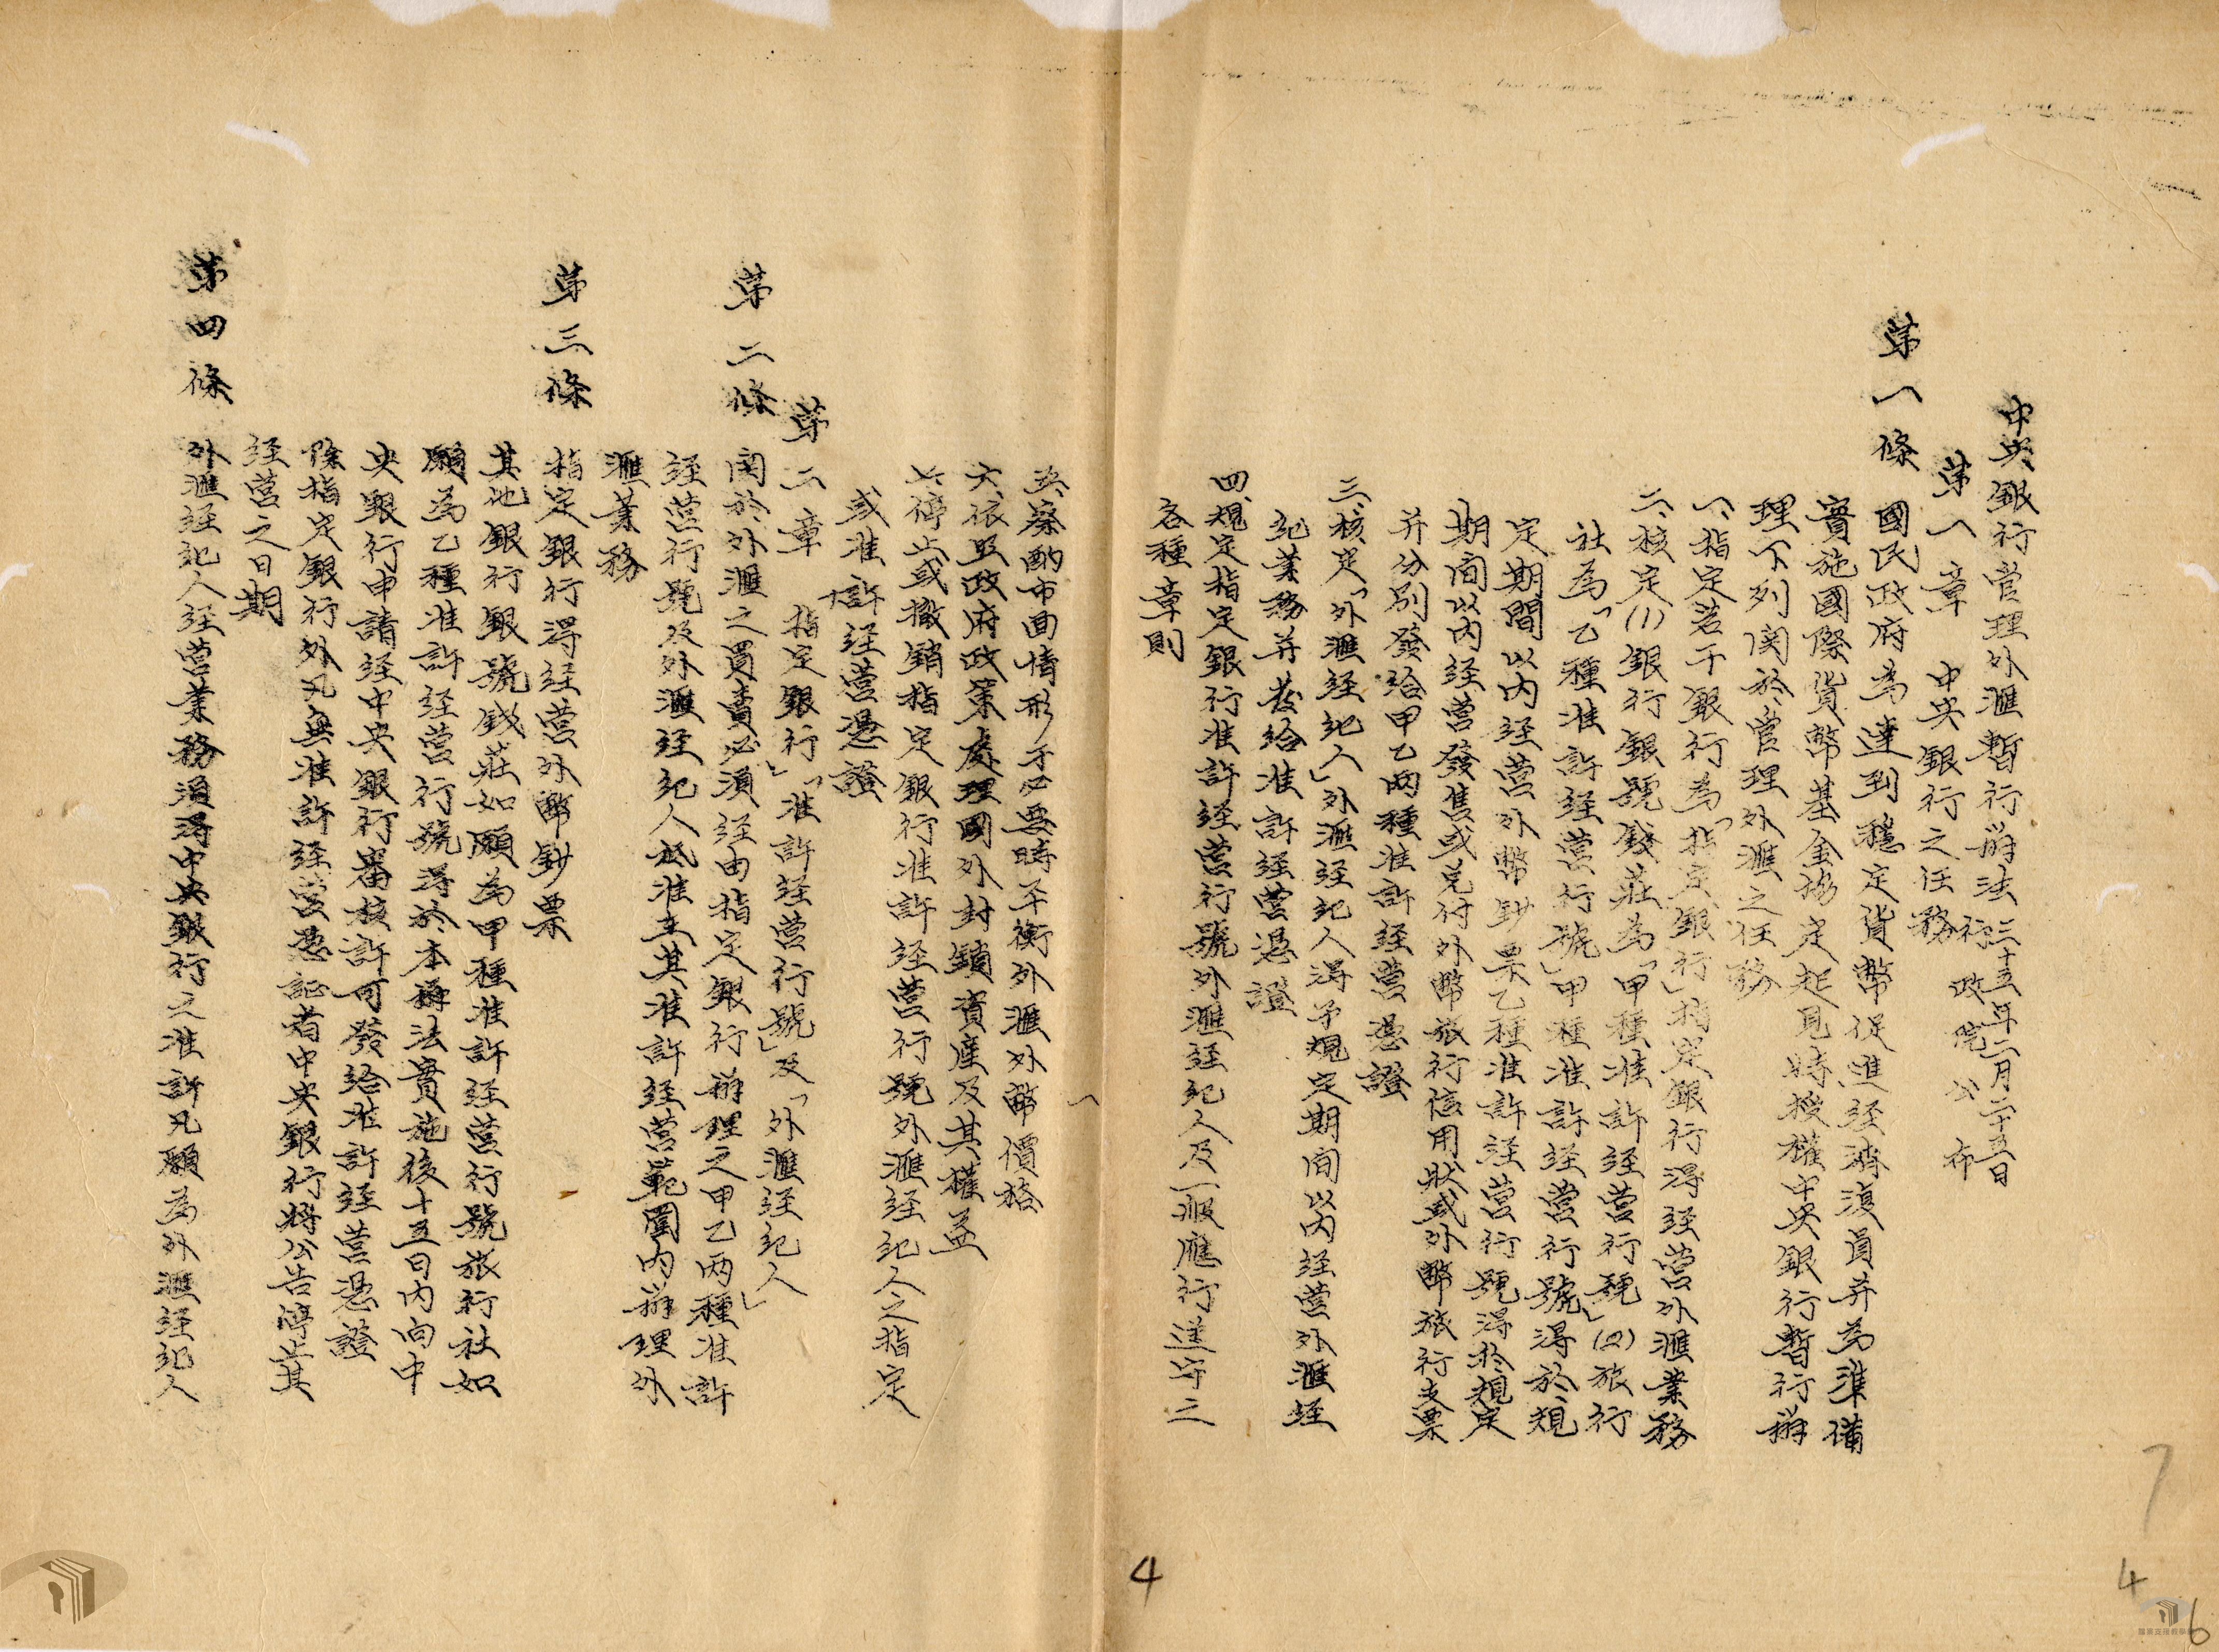 中央銀行管理外滙暫行辦法 三十五年二月二十五日
行政院公布
第一章 中央銀行之任務
第一條 國民政府為達到穩定貨幣促進经濟復員并為準備
實施國際貨幣基金協定起見特授權中央銀行暫行辦
理下列関於管理外滙之任務
一、指定若干銀行為「指定銀行」指定銀行得経營外滙業務
二、核定(1)銀行銀號錢莊為「甲種准許経營行號」(2)旅行
社為「乙種准許経營行號」甲種准許経營行號得於規
定期間以內経營外幣鈔票乙種准許経營行號得於規定
期间以內経營發售或兌付外幣旅行信用狀或外幣旅行支票
并分別發给甲乙两種准許経營憑證
三、核定「外滙経紀人」外滙経紀人得于規定期间以內経營外滙経
紀業務并發給准許経營憑證
四、規定指定銀行准許経營行號外滙経紀人及一般應行遵守之
各種章則
一
五、察酌市面情形于必要時平衡外滙外幣價格
六、依照政府政策處理國外封鎖資產及其權益
七、停止或撤銷指定銀行准許経營行號外滙経紀人之指定
或准許経營憑證
第二章 指定銀行」「准許経營行號」及「外滙経紀人」
第二條 関於外滙之買賣必須経由指定銀行辦理之甲乙两種准許
経營行號及外滙経紀人祇准在其准許経營範圍內辦理外
滙業務
第三條 指定銀行得経營外幣鈔票
其他銀行銀號錢莊如願為甲種准許経營行號旅行社如
願為乙種准許経營行號得於本辦法實施後十五日內向中
央銀行申請経中央銀行審核許可發给准許経營憑證
除指定銀行外凡無准許経營憑証者中央銀行將公告停止其
経營之日期
第四條 外滙経紀人経營業務須得中央銀行之准許凡願為外滙経紀人
4
7
4
6
檔案支援教學網